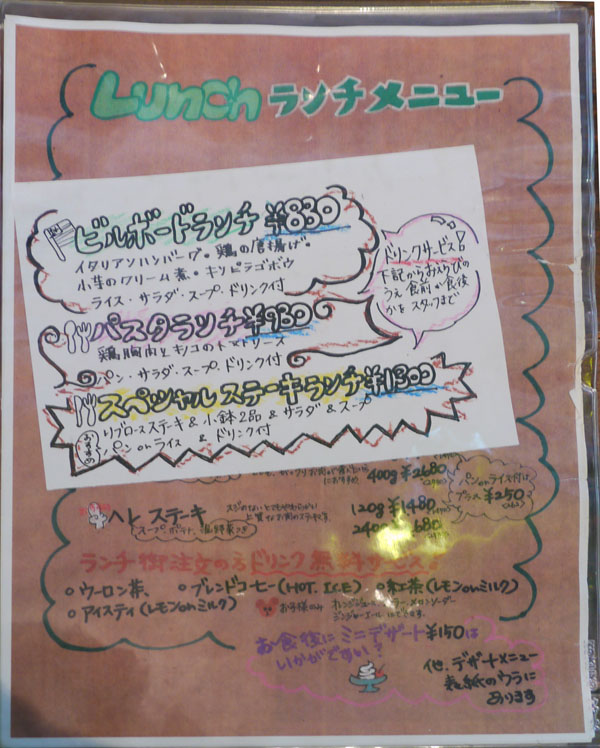 Lunch ランチメニュー
ビルボードランチ ¥830
イタリアンハンバーグ・鶏の唐揚げ・
小芋のクリーム煮・キンピラゴボウ
ライス・サラダ・スープ・ドリンク付
ドリンクサービス
下記からおえらびの
うえ食前・食後
かをスタッフまで
パスタランチ ¥980
鶏胸肉とキノコのトマトソース
パン・サラダ・スープ・ドリンク付
スペシャルステーキランチ ¥1300
おすすめ
リブロースステーキ & 小鉢2品 & サラダ & スープ
パン or ライス & ドリンク付
400g ¥2680
パン or ライス付は
プラス ¥250
ヘレステーキ
120g ¥1480
240g 680
スープ、ポテト、温野菜つき
ランチ御注文の方ドリンク無料サービス!
○ウーロン茶、 ○ブレンドコーヒー(HOT. ICE)、○紅茶(レモン or ミルク)
○アイスティ(レモン or ミルク)
お子様のみ
お食後にミニデザート ¥150は
いかがですか?
他、デザートメニュー
表紙のウラに
あります